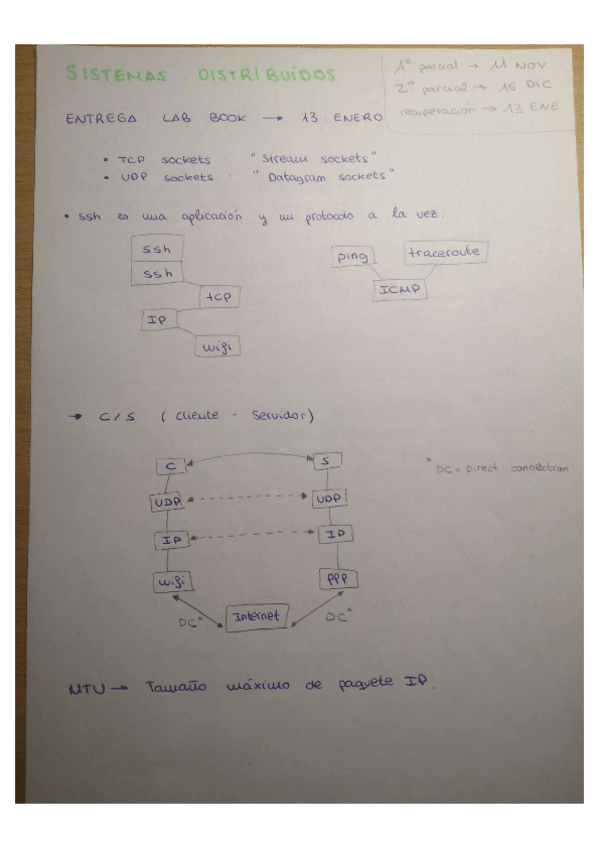 SISTEMAS DISTRIBUIDOS
1º parcial → 11 NOV
2º parcial → 16 DIC
recuperación → 13 ENE
ENTREGA LAB BOOK → 13 ENERO
• TCP sockets "Stream sockets"
• UDP sockets "Datagram sockets"
• ssh es una aplicación y un protocolo a la vez.
ssh
ssh
tcp
IP
wifi
ping traceroute
ICMP
→ C/S (Cliente - Servidor)
C S
* DC = Direct connection
UDP UDP
IP IP
wifi PPP
DC* Internet DC*
MTU → Tamaño máximo de paquete IP.